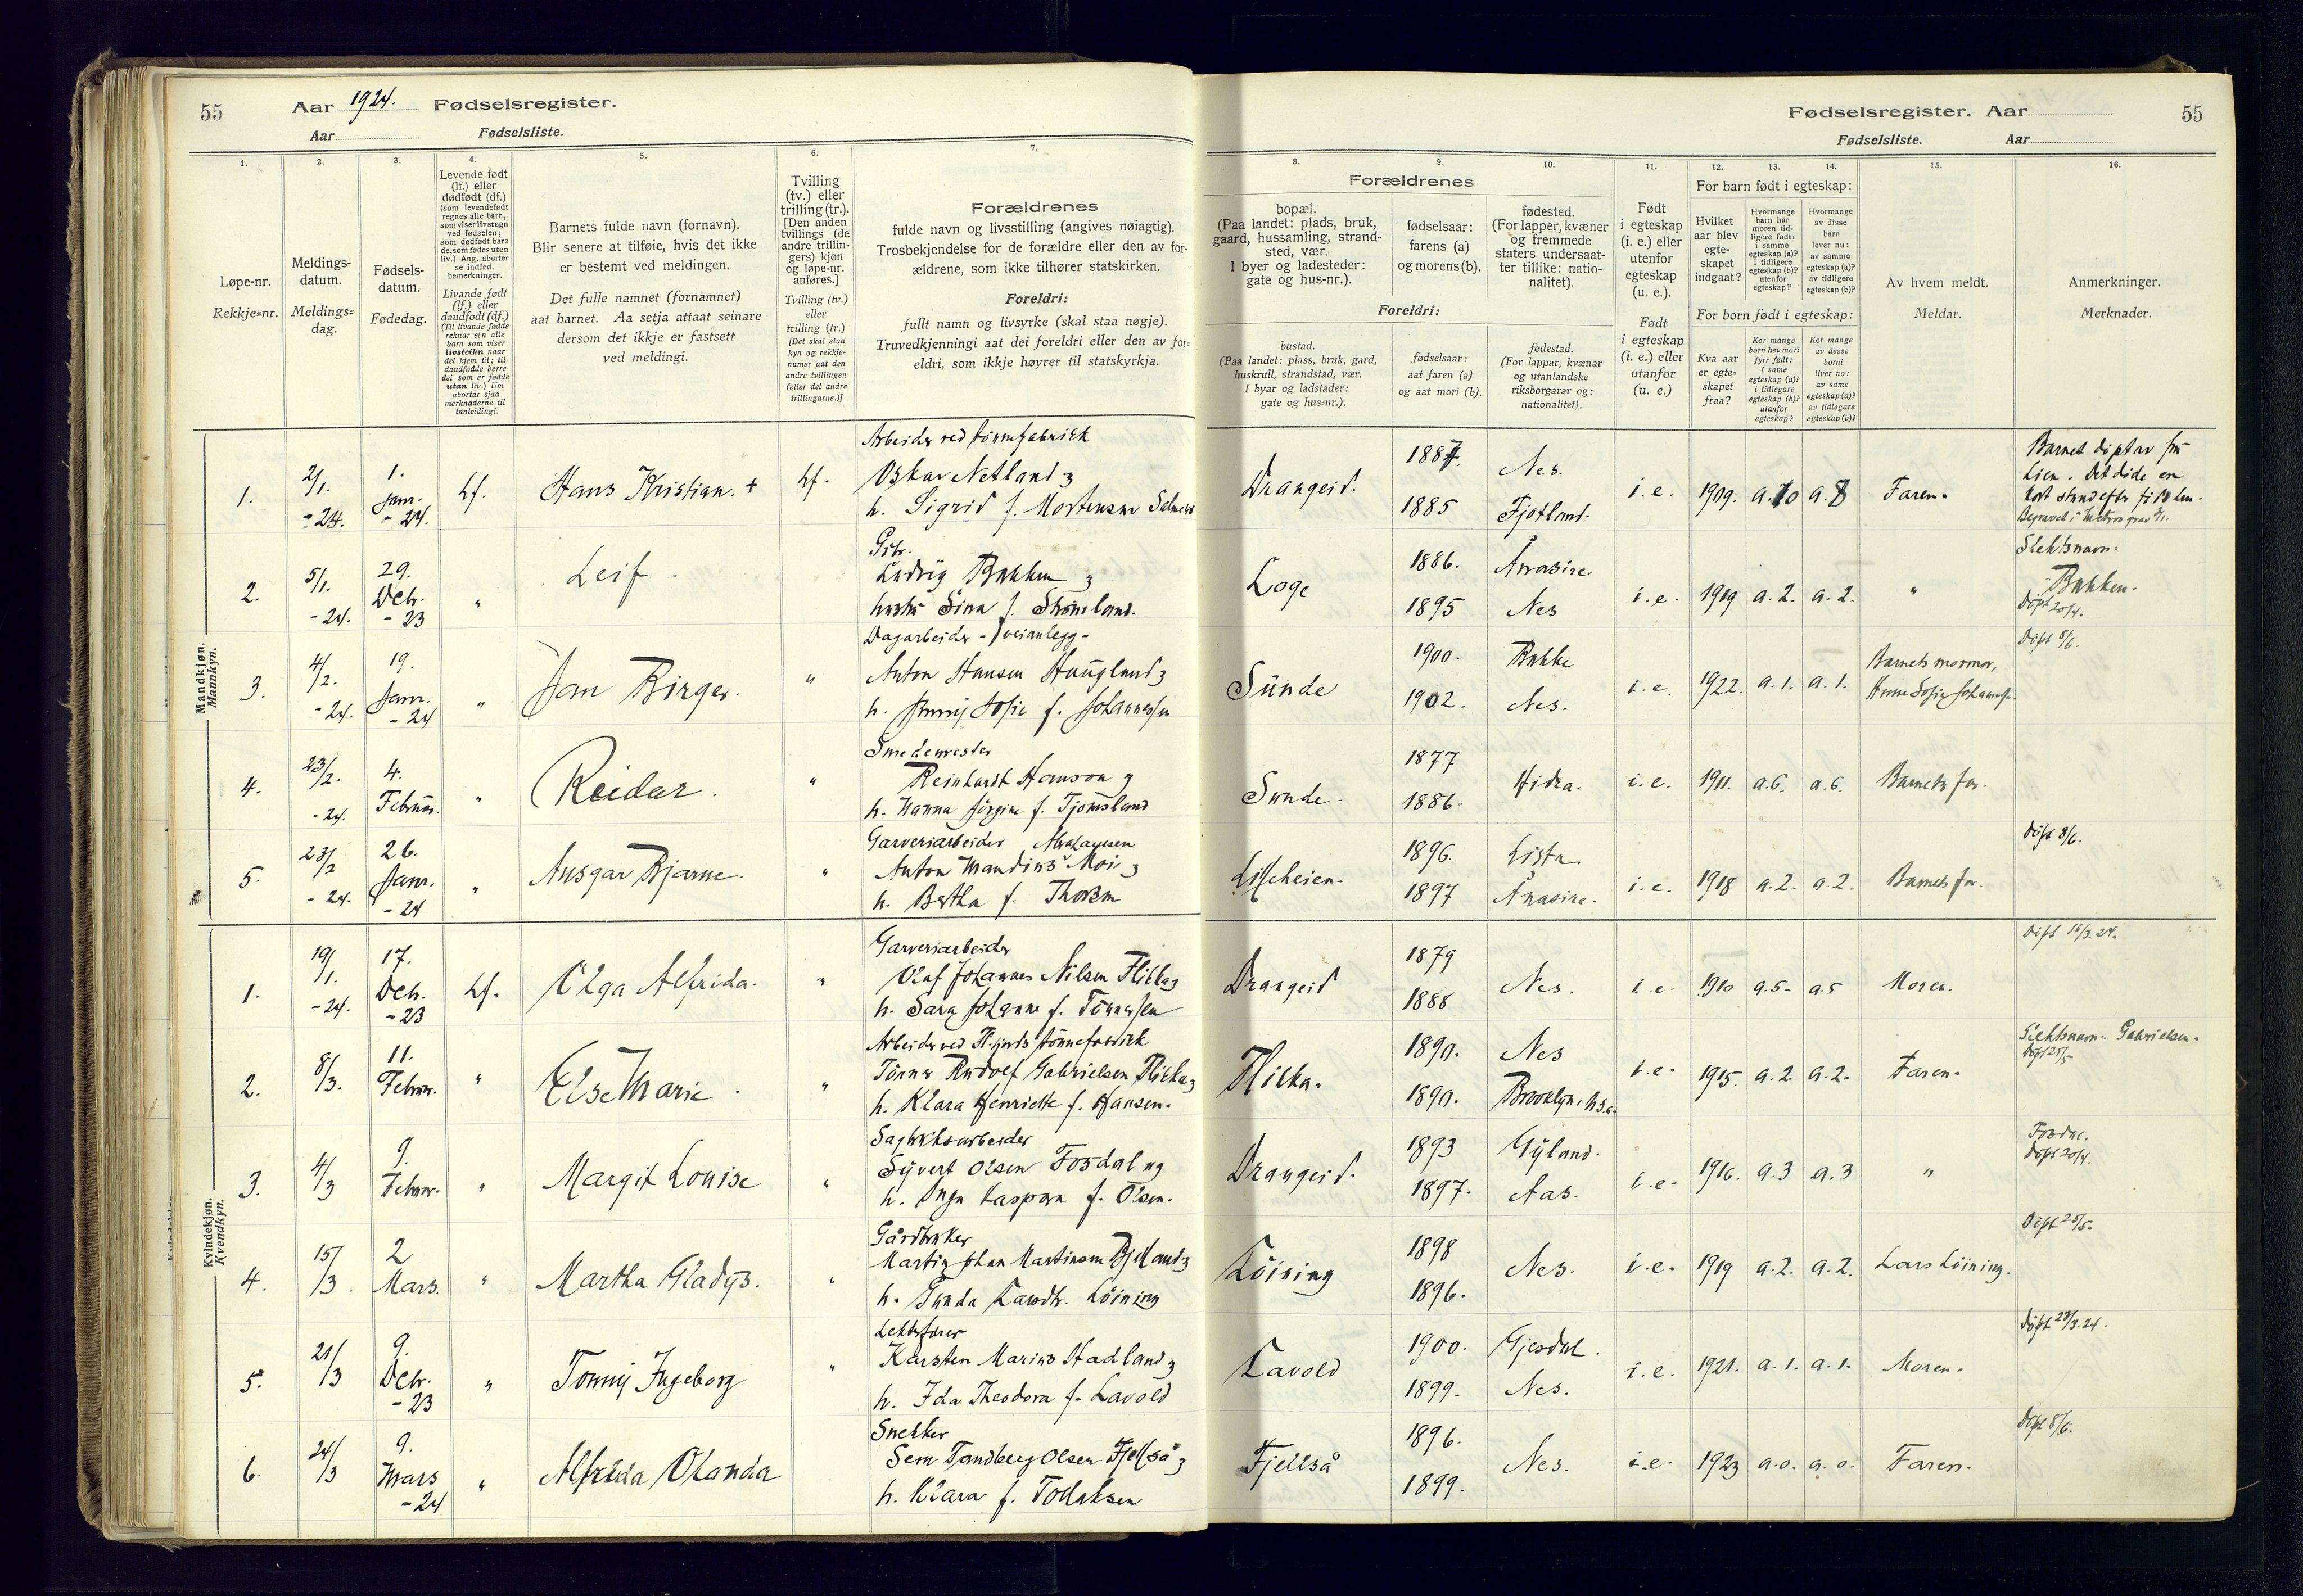 55 Aar 1924. Fødselsregister.
Aar Fødselsliste.
Fødselsregister. Aar 55
Fødselsliste. Aar
1. 2. 3. 4. 5. 6. 7. 8. 9. 10. 11. 12. 13. 14. 15. 16.
Løpe-nr.
Rekkje=nr.
Meldings-
datum.
Meldings=
dag.
Fødsels-
datum.
Fødedag.
Levende født
(lf.) eller
dødfødt (df.)
(som levendefødt
regnes alle barn,
som viser livstegn
ved fødselen;
som dødfødt bare
de, som fødes uten
liv.) Ang. aborter
se indled.
bemerkninger.
Livande født
(lf.) eller
daudfødt (df.)
(Til livande fødde
reknar ein alle
barn som viser
livsteikn naar
dei kjem til; til
daudfødde berre
dei som er fødde
utan liv.) Um
abortar sjaa
merknaderne til
innleidingi.
Barnets fulde navn (fornavn).
Blir senere at tilføie, hvis det ikke
er bestemt ved meldingen.
Det fulle namnet (fornamnet)
aat barnet. Aa setja attaat seinare
dersom det ikkje er fastsett
ved meldingi.
Tvilling
(tv.) eller
trilling (tr.).
[Den anden
tvillings (de
andre trillin-
gers) kjøn
og løpe-nr.
anføres.]
Tvilling (tv.)
eller
trilling (tr.)
[Det skal staa
kyn og rekkje-
numer aat den
andre tvillingen
(eller dei andre
trillingarne.)]
Forældrenes
fulde navn og livsstilling (angives nøiagtig).
Trosbekjendelse for de forældre eller den av for-
ældrene, som ikke tilhører statskirken.
Foreldri:
fullt namn og livsyrke (skal staa nøgje).
Truvedkjenningi aat dei foreldri eller den av for=
eldri, som ikkje høyrer til statskyrkja.
Forældrenes
bopæl.
(Paa landet: plads, bruk,
gaard, hussamling, strand-
sted, vær.
I byer og ladesteder:
gate og hus-nr.).
fødselsaar:
farens (a)
og morens (b).
fødested.
(For lapper, kvæner
og fremmede
staters undersaat-
ter tillike: natio-
nalitet).
Foreldri:
bustad.
(Paa landet: plass, bruk, gard,
huskrull, strandstad, vær.
I byar og ladstader:
gate og hus=nr.).
fødselsaar:
aat faren (a)
og aat mori (b).
fødestad.
(For lappar, kvænar
og utanlandske
riksborgarar og:
nationalitet).
Født
i egteskap
(i. e.) eller
utenfor
egteskap
(u. e.).
Født
i egteskap
(i. e.) eller
utanfor
(u. e.)
For barn født i egteskap:
Hvilket
aar blev
egte-
skapet
indgaat?
Hvormange
barn har
moren tid-
ligere født:
i samme
egteskap (a)?
i tidligere
egteskap (b)?
utenfor
egteskap?
Hvormange
av disse
barn
lever nu:
av samme
egteskap (a)?
av tidligere
egteskap (b)?
For born født i egteskap:
Kva aar
er egte=
skapet
fraa?
Kor mange
born hev mori
fyrr født:
i same
egteskap (a)?
i tidlegare
egteskap (b)?
utanfor
egteskap?
Kor mange
av desse
borni
liver no:
av same
egteskap (a)?
av tidlegare
egteskap (b)?
Av hvem meldt.
Meldar.
Anmerkninger.
Merknader.
Mandkjøn.
Mannkyn.
Arbeider ved tønnefabrikk
1. 2/1. -24. 1. Janr. -24. Lf. Hans Kristian. + Lf. Oskar Netland og
h. Sigrid f. Mortensen
Drangeid. 1887. 1885 Nes. Fjotland. i.e. 1909. a.10 a.8 Faren.
Barnet døpt av
Lien. Det døde en
kort stund efter
2. 5/1. -24. 29. Decbr. -23 " Leif. " Ludvig Bakken og
hustru Sina f. Strømland.
Loge 1886. 1895 Ånasire Nes i.e. 1919 a.2. a.2. "
Slektsnavn.
Bakken.
Døpt 20/4.
Dagarbeider - veianlegg -
3. 4/2. -24. 19. Janr. -24 " Jan Birger. " Anton Hansen Haugland og
h. Sofie f. Johannessen
Sunde 1900. 1902. Bakke Nes. i.e. 1922. a.1. a.1. Barnets mormor,
Døpt 5/6.
Smedemester
4. 23/2. -24. 4. Februar. " Reidar. " Reinhardt Hanson og
h. Hanna Jørgine f. Tjomsland
Sunde. 1877 1886. Hidra. i.e. 1911. a.6. a.6. Barnets far.
Garveriarbeider
5. 23/2 -24. 26. Janr. -24 " Ansgar Bjarne. " Anton Mandius Moi og
h. Bertha f. Thorsen
1896. 1897 Lista Ånasire. i.e. 1918 a.2. a.2. Barnets far.
Døpt 8/6.
Kvindekjøn.
Kvendkyn.
Garveriarbeider
1. 19/1. -24. 17. Decbr. -23 Lf. Olga Alfrida. " Olaf Johannes Nilsen Flikka og
h. Sara Johanne f. Tønnessen
Drangeid 1879 1888 Nes. i.e. 1910 a.5. a.5 Moren.
Døpt 16/3.24.
2. 8/3. 11. Februar. " Else Marie. " Tønnes Rudolf Gabrielsen Flikka og
h. Klara Henriette f. Hansen.
Flikka. 1890. 1890. Nes Brooklyn, i.e. 1915. a.2 a.2. Faren.
Slektsnavn: Gabrielsen.
Døpt 25/5
Sagbruksarbeider
3. 4/3 9. Februar. " Margit Louise " Syvert Olsen Fosdal og
h. Inga f. Olsen.
Drangeid. 1893 1897. Gyland. Aas. i.e. 1916. a.3 a.3 "
Døpt 20/4.
Gårdbruker
4. 15/3. 2 Mars. " Martha Gladys. " Martin Johan Martinsen Bjelland og
h. Løining
Løining 1898 1896. Nes. i.e. 1919 a.2. a.2. Lars Løining.
Døpt 25/5.
5. 21/3 9. Decbr. -23 " Tonny Ingeborg " Karsten Marius Stadland og
h. Ida Theodora f. Lavold
Lavold 1900. 1899. Gjesdal. Nes. i.e. 1921. a.1. a.1. Moren.
Døpt 23/3.24.
Snekker
6. 24/3 9. Mars -24 " Alfrida Olanda Sem Tandberg Olsen Fjellså og
h. Klara f. Tollaksen
Fjellså 1896. 1899. Nes. i.e. 1923 a.o. a.o. Faren.
Døpt 8/6.